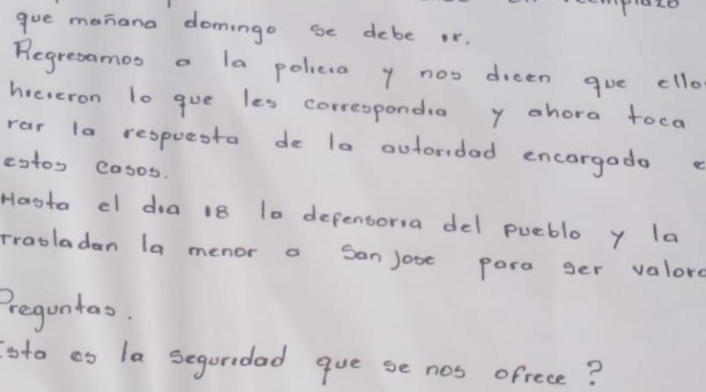 que mañana domingo se debe ir.
Regresamos a la policia y nos dicen que ello
hicieron lo que les correspondia y ahora toca
rar la respuesta de la autoridad encargada e
estos casos.
Hasta el dia 18 la defensoria del pueblo y la
trasladan la menor a San Jose para ser valora
Preguntas.
Esta es la seguridad que se nos ofrece?